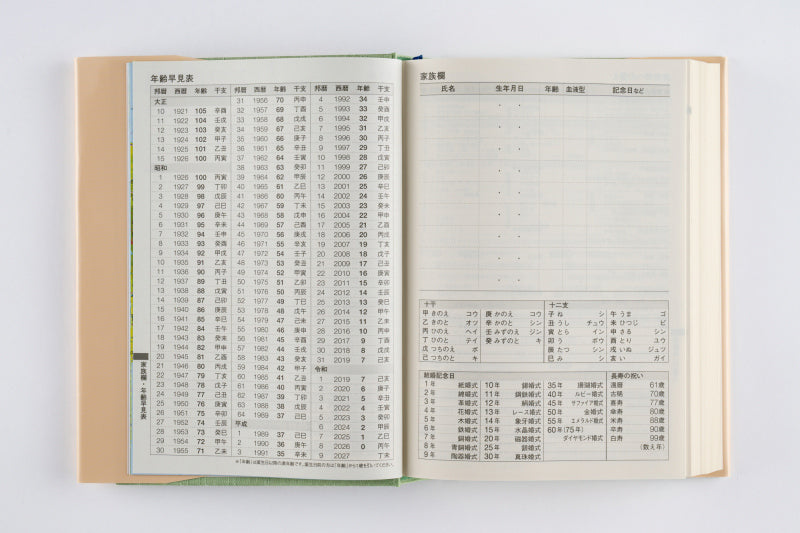 年齢早見表
邦暦 西暦 年齢 干支
大正
10 1921 105 辛酉
11 1922 104 壬戌
12 1923 103 癸亥
13 1924 102 甲子
14 1925 101 乙丑
15 1926 100 丙寅
昭和
1 1926 100 丙寅
2 1927 99 丁卯
3 1928 98 戊辰
4 1929 97 己巳
5 1930 96 庚午
6 1931 95 辛未
7 1932 94 壬申
8 1933 93 癸酉
9 1934 92 甲戌
10 1935 91 乙亥
11 1936 90 丙子
12 1937 89 丁丑
13 1938 88 戊寅
14 1939 87 己卯
15 1940 86 庚辰
16 1941 85 辛巳
17 1942 84 壬午
18 1943 83 癸未
19 1944 82 甲申
20 1945 81 乙酉
21 1946 80 丙戌
22 1947 79 丁亥
23 1948 78 戊子
24 1949 77 己丑
25 1950 76 庚寅
26 1951 75 辛卯
27 1952 74 壬辰
28 1953 73 癸巳
29 1954 72 甲午
30 1955 71 乙未
邦暦 西暦 年齢 干支
31 1956 70 丙申
32 1957 69 丁酉
33 1958 68 戊戌
34 1959 67 己亥
35 1960 66 庚子
36 1961 65 辛丑
37 1962 64 壬寅
38 1963 63 癸卯
39 1964 62 甲辰
40 1965 61 乙巳
41 1966 60 丙午
42 1967 59 丁未
43 1968 58 戊申
44 1969 57 己酉
45 1970 56 庚戌
46 1971 55 辛亥
47 1972 54 壬子
48 1973 53 癸丑
49 1974 52 甲寅
50 1975 51 乙卯
51 1976 50 丙辰
52 1977 49 丁巳
53 1978 48 戊午
54 1979 47 己未
55 1980 46 庚申
56 1981 45 辛酉
57 1982 44 壬戌
58 1983 43 癸亥
59 1984 42 甲子
60 1985 41 乙丑
61 1986 40 丙寅
62 1987 39 丁卯
63 1988 38 戊辰
64 1989 37 己巳
平成
1 1989 37 己巳
2 1990 36 庚午
3 1991 35 辛未
邦暦 西暦 年齢 干支
4 1992 34 壬申
5 1993 33 癸酉
6 1994 32 甲戌
7 1995 31 乙亥
8 1996 30 丙子
9 1997 29 丁丑
10 1998 28 戊寅
11 1999 27 己卯
12 2000 26 庚辰
13 2001 25 辛巳
14 2002 24 壬午
15 2003 23 癸未
16 2004 22 甲申
17 2005 21 乙酉
18 2006 20 丙戌
19 2007 19 丁亥
20 2008 18 戊子
21 2009 17 己丑
22 2010 16 庚寅
23 2011 15 辛卯
24 2012 14 壬辰
25 2013 13 癸巳
26 2014 12 甲午
27 2015 11 乙未
28 2016 10 丙申
29 2017 9 丁酉
30 2018 8 戊戌
31 2019 7 己亥
令和
1 2019 7 己亥
2 2020 6 庚子
3 2021 5 辛丑
4 2022 4 壬寅
5 2023 3 癸卯
6 2024 2 甲辰
7 2025 1 乙巳
8 2026 0 丙午
9 2027 丁未
※「年齢」は誕生日以降の満年齢です。誕生日前の方は「年齢」から1歳を引いてください。
家族欄・年齢早見表
家族欄
氏名 生年月日 年齢 血液型 記念日など
十干
甲 きのえ コウ
乙 きのと オツ
丙 ひのえ ヘイ
丁 ひのと テイ
戊 つちのえ ボ
己 つちのと キ
庚 かのえ コウ
辛 かのと シン
壬 みずのえ ジン
癸 みずのと キ
十二支
子 ね シ
丑 うし チュウ
寅 とら イン
卯 う ボウ
辰 たつ シン
巳 み シ
午 うま ゴ
未 ひつじ ビ
申 さる シン
酉 とり ユウ
戌 いぬ ジュツ
亥 い ガイ
結婚記念日
1年 紙婚式
2年 綿婚式
3年 革婚式
4年 花婚式
5年 木婚式
6年 鉄婚式
7年 銅婚式
8年 青銅婚式
9年 陶器婚式
10年 錫婚式
11年 鋼鉄婚式
12年 絹婚式
13年 レース婚式
14年 象牙婚式
15年 水晶婚式
20年 磁器婚式
25年 銀婚式
30年 真珠婚式
35年 珊瑚婚式
40年 ルビー婚式
45年 サファイア婚式
50年 金婚式
55年 エメラルド婚式
60年(75年)
ダイヤモンド婚式
長寿の祝い
還暦 61歳
古稀 70歳
喜寿 77歳
傘寿 80歳
米寿 88歳
卒寿 90歳
白寿 99歳
(数え年)